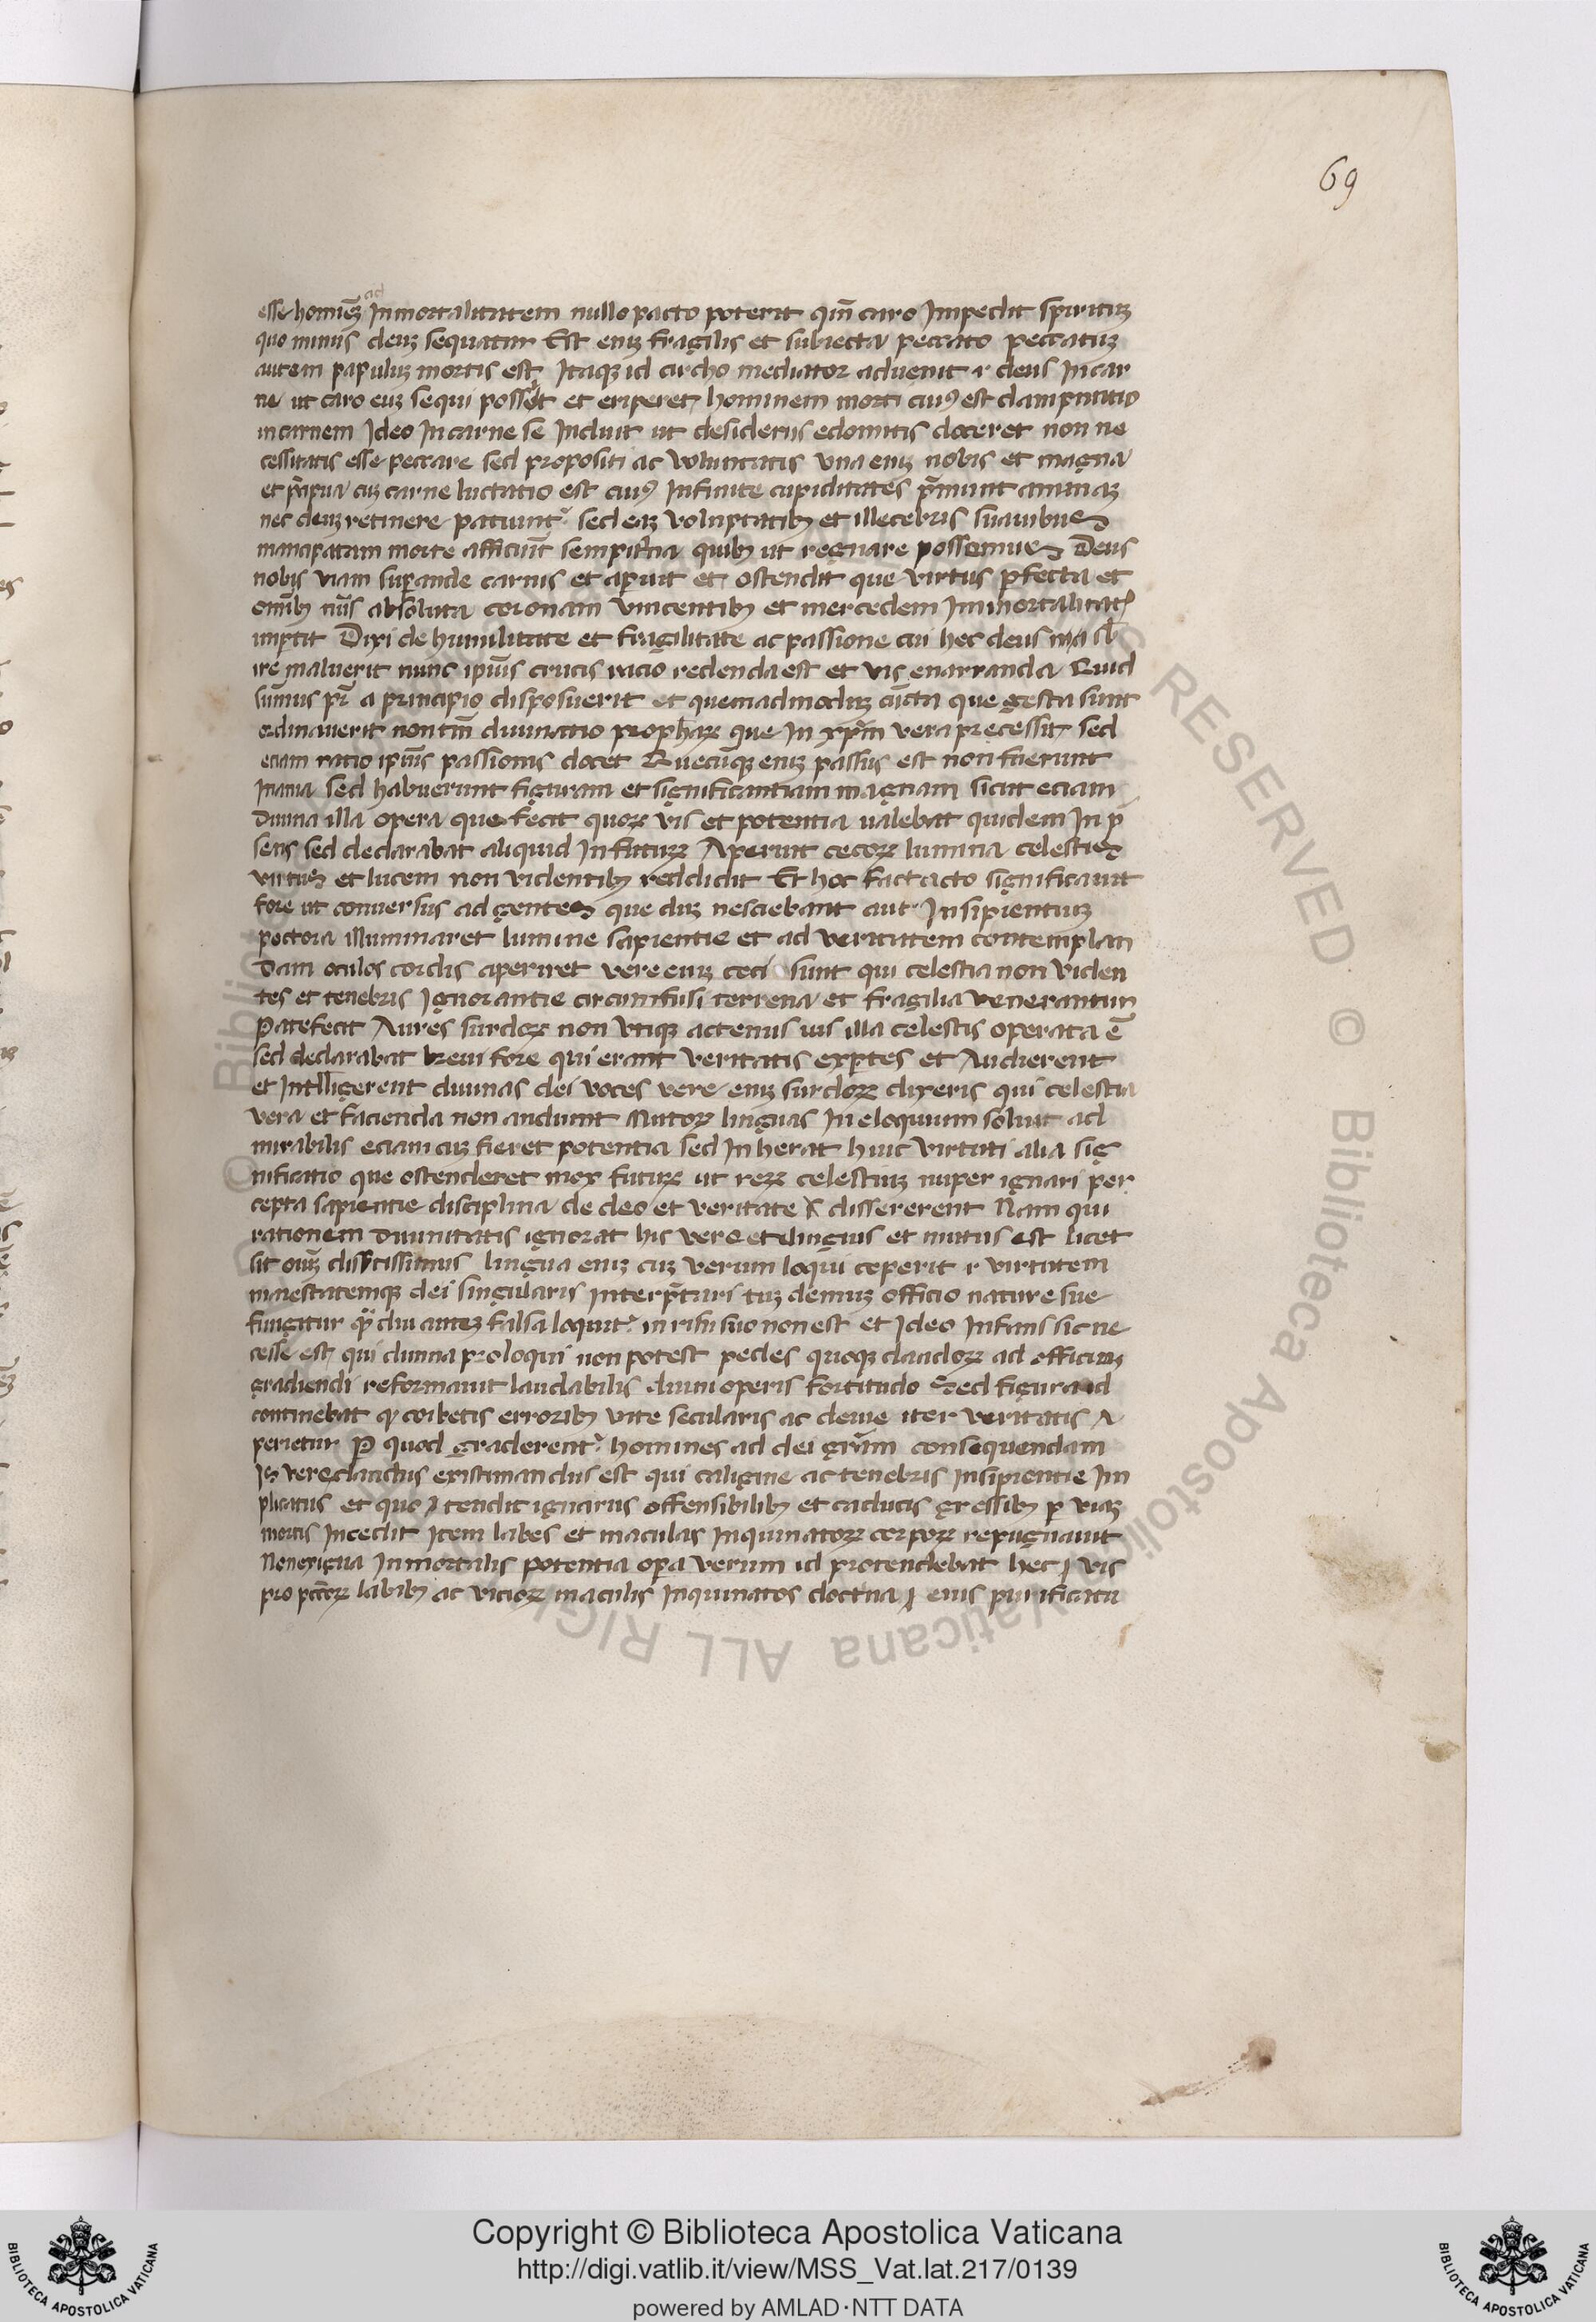 69
esse homiēꝫ ad Inmortalitatem nullo pacto poterit qm̄ caro Impedit spiritūꝫ
quo minus deuꝫ sequatur Est eniꝫ fragilis et subiecta peccato peccatuꝫ
autem papuluꝫ mortis est Itaqꝫ id circho mediator aduenit ɾ deus In car
ne ut caro euꝫ sequi posset et eriperet hominem morti cuiꝰ est dampnatio
in carnem Ideo In carne se Induit ut desideriis edomitis doceret non ne
cessitatis esse peccare sed propositi ac voluntatis Una eniꝫ nobis et magna
et p̄cipua cuꝫ carne luctatio est cuiꝰ Infinite cupiditates p̄munt animaꝫ
nec deuꝫ retinere patiunt᷑ sed eaꝫ voluptatibꝫ et illecebris suauibus
mancipatam morte afficiūt sempit̄na quibꝫ ut regnare possemus Deus
nobis viam suꝑande carnis et aꝑuit et ostendit que virtus ꝑfecta et
omībꝫ nūs absoluta coronam vincentibꝫ et mercedem Inmortalitatꝭ
imꝑtit Dixi de humilitate et fragilitate ac passione cui hec deus ma sb̄
ire maluerit nunc ipiūs crucis racio redenda est et vis enarranda Quid
sūmus pr̄ a principio disposuerit et quemadmoduꝫ cūcta que gesta sunt
ordinauerit non tm̄ diuinatio prophaꝝ que In xp̄m vera precessit sed
eciam ratio ipiūs passionis docet Quecūqꝫ eniꝫ passus est non fuerunt
Inania sed habuerunt figuram et significantiam magnam sicut eciam
Diuina illa opera que fecit quoꝝ vis et potentia ualebat quidem In p̄
sens sed declarabat aliquid In futuꝝ Aperuit cecoꝝ lumina celestis
virtus et lucem non videntibꝫ reddidit Et hoc facto significauit
fore ut conuersus ad gentes que duꝫ nesciebant aut Insipientiuꝫ
pectora illuminaret lumine sapientie et ad veritatem contemplan
Dam oculos cordis aperiret vere eniꝫ ceci sunt qui celestia non viden
tes et tenebris Ignorantie circumfusi terrena et fragilia venerantur
Patefecit Aures surdoꝝ non Utiqꝫ actenus uis illa celestis operata ē
sed declarabat breui fore qui erant veritatis exꝑtes et Audierent
et Intlligerent diuinas dei voces vere eniꝫ surdoꝝ dixeris qui celestia
vera et facienda non audiunt Mutoꝝ linguas In eloquium soluit ad
mirabilis eciam cuꝫ fieret potentia sed In herat huic virtuti alia sig
nificatio que ostenderet mox futuꝝ ut reꝝ celestiuꝫ nuper ignari per
cepta sapientie disciplina de deo et veritate disſererent Nam qui
rationem Diuinitatis ignorat his vere et elinguis et mutus est licet
sit oīuꝫ dissertissimus lingua eniꝫ cuꝫ verum loqui ceperit ɾ virtutem
maiestatemqꝫ dei singularis interp̄taris tuꝫ demuꝫ officio nature sue
fungitur qͣ̄diu auteꝫ falsa loquit᷑ in usu suo non est et Ideo Infans sic ne
cesse est qui diuina proloqui non potest pedes quoqꝫ claudoꝝ ad officiuꝫ
gradiendi reformauit laudabilis diuini operis fortitudo Sed figura id
continebat qꝫ coibetis erroribꝫ vite secularis ac deuie iter veritatis A
perietur Ꝑ quod graderent᷑ homines ad dei gr̄am consequendam
Is vere claudus existimandus est qui caligine ac tenebris insipientie Im
plicatus et quo tendit ignarus offensibilibꝫ et caducis gressibꝫ ꝑ viaꝫ
mortis Incedit Item labes et maculas Inquinatoꝝ corpoꝝ repugnauit
Non exigua Inmortalis potentia oꝑa verum id protendebat hec vis
pro pcc̄oꝝ labibꝫ ac vicioꝝ maculis Inquinatos doctrīa eius purificatu
Copyright © Biblioteca Apostolica Vaticana
http://digi.vatlib.it/view/MSS_Vat.lat.217/0139
powered by AMLAD·NTT DATA
BIBLIOTECA APOSTOLICA VATICANA
BIBLIOTECA APOSTOLICA VATICANA